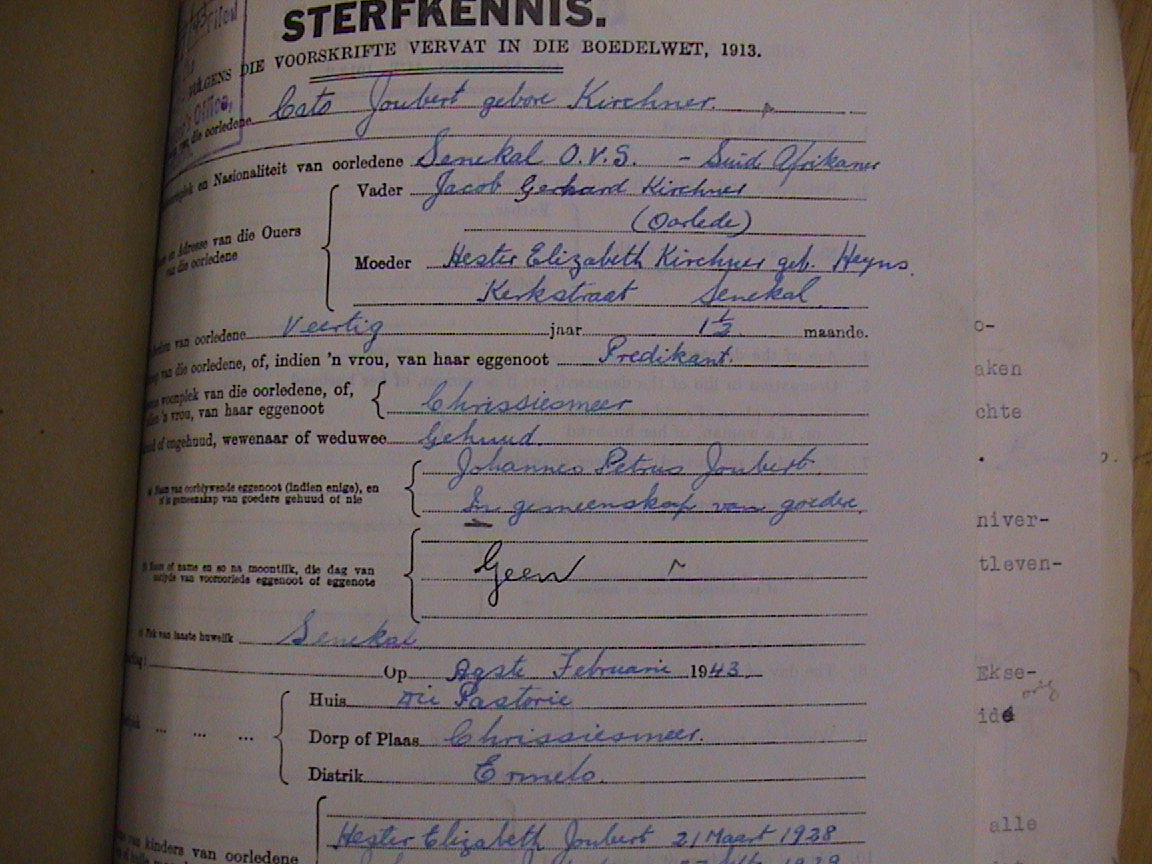 STERFKENNIS.
VOLGENS DIE VOORSKRIFTE VERVAT IN DIE BOEDELWET, 1913.
Office,
van die oorledene Cato Joubert gebore Kirchner.
en Nasionaliteit van oorledene Senekal O.V.S. - Suid Afrikaner
Vader Jacob Gerhard Kirchner
(Oorlede)
en Adresse van die Ouers
van die oorledene
Moeder Hester Elizabeth Kirchner geb. Heyns.
Kerkstraat Senekal.
van oorledene Veertig jaar 1½ maande.
van die oorledene, of, indien 'n vrou, van haar eggenoot Predikant.
woonplek van die oorledene, of,
'n vrou, van haar eggenoot
Chrissiesmeer
of ongehuud, wewenaar of weduwee Gehuud.
Johannes Petrus Joubert
Naam van oorblywende eggenoot (indien enige), en
of in gemeenskap van goedere gehuud of nie
In gemeenskap van goedere.
Naam of name en so na moontlik, die dag van
van vooroorlede eggenoot of eggenote
Geen
Plek van laaste huwelik Senekal.
Op Agste Februarie 1943.
Huis Die Pastorie
Dorp of Plaas Chrissiesmeer.
Distrik Ermelo.
van kinders van oorledene
Hester Elizabeth Joubert 21 Maart 1938
1939
o-
aken
chte
niver-
tleven-
Ekse-
ide
alle